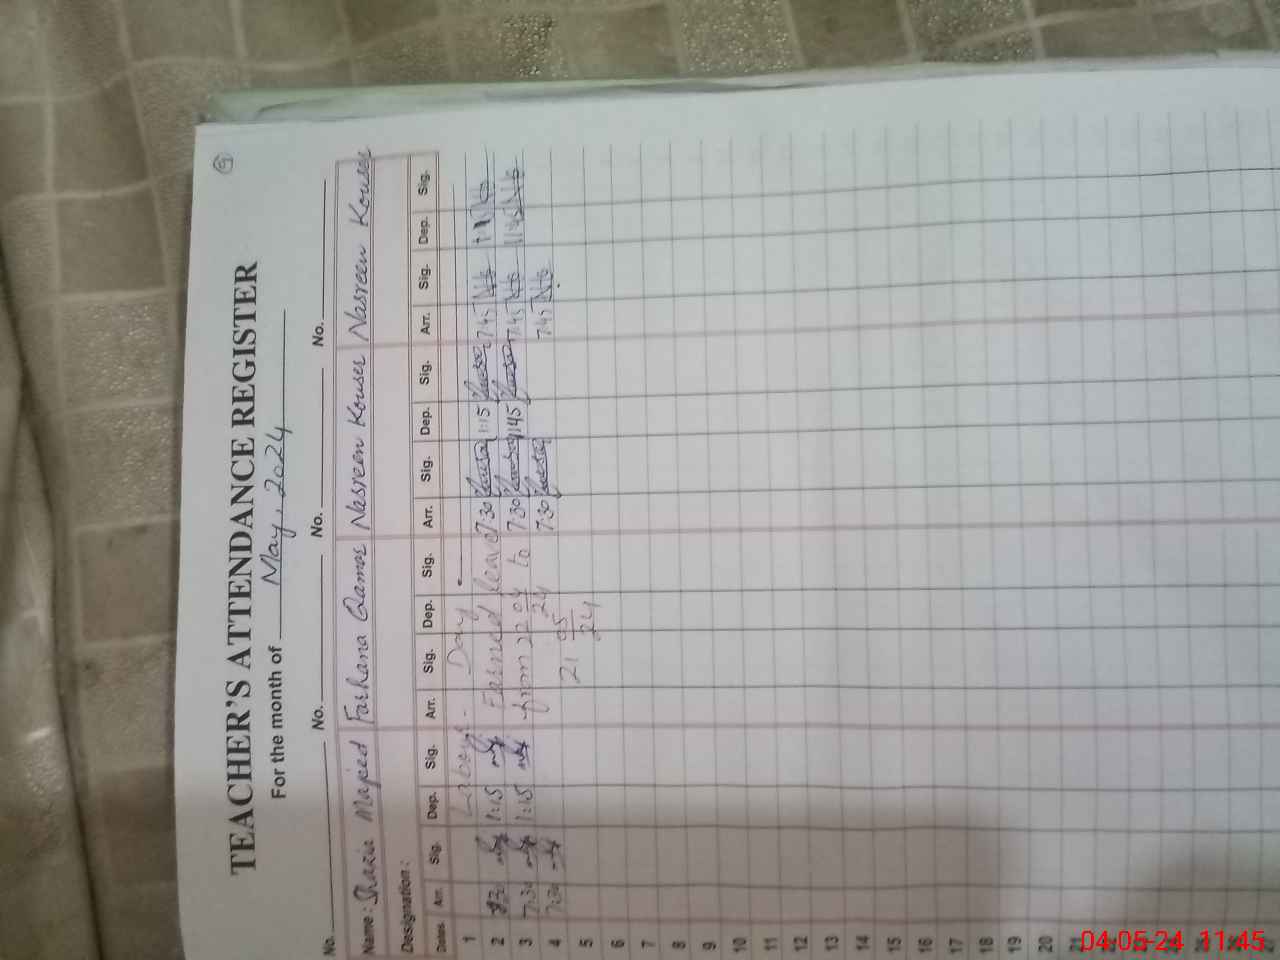 TEACHER'S ATTENDANCE REGISTER
For the month of May, 2024
No. No. No. No.
Name: Shazia Majeed Farhana Qamar Nasreen Kouser Nasreen Kouser
Designation:
Dates Arr. Sig. Dep. Sig. Arr. Sig. Dep. Sig. Arr. Sig. Dep. Sig. Arr. Sig. Dep. Sig.
1 Labour Day
2 7:30 1:15 Earned leave 7:30 Kouser 1:15 Kouser 7:45
3 7:30 1:15 from 22 04 24 to 7:30 Kouser 1:45 Kouser 7:45 1:45
4 7:30 21 05 24 7:30 Kouser 7:45
5
6
7
8
9
10
11
12
13
14
15
16
17
18
19
20
21
22
23
24
25
26
27
04-05-24 11:45